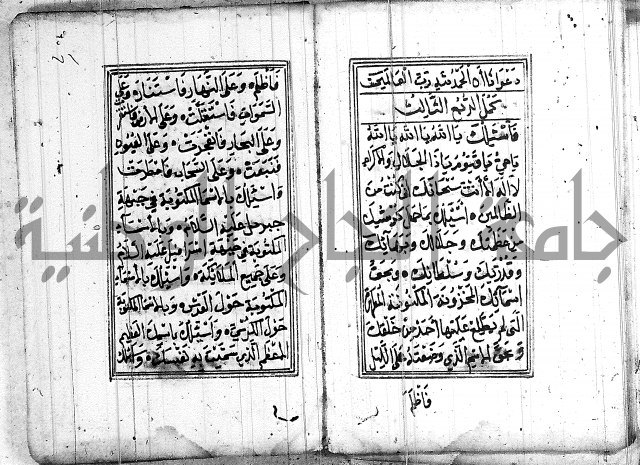 دعواهم ان الحمد لله رب العالمين
كمل الربع الثالث
فاسئلك يا الله يا الله يا الله
يا حي يا قيوم يا ذا الجلال والاكرام
لا اله الا انت سبحانك اني كنت من
الظالمين اسئلك بما حمل كرسيك
من عظمتك وجلالك وبهائك
وقدرتك وسلطانك وبحق
اسمائك المخزونة المكنونة المطهرة
التي لم يطلع عليها احد من خلقك
وبحق الاسم الذي وضعته على الليل
فاظلم
فاظلم وعلى النهار فاستنار وعلى
السموات فاستقلت وعلى الارض فاستقرت
وعلى البحار فانفجرت وعلى العيون
فنبعت وعلى السحاب فامطرت
واسئلك بالاسماء المكتوبة في جبهة
جبريل عليه السلام وبالاسماء
المكتوبة في جبهة اسرافيل عليه السلام
وعلى جميع الملائكة واسئلك بالاسماء
المكتوبة حول العرش وبالاسماء المكتوبة
حول الكرسي واسئلك باسمك العظيم
الاعظم الذي سميت به نفسك
جامعة النجاح الوطنية